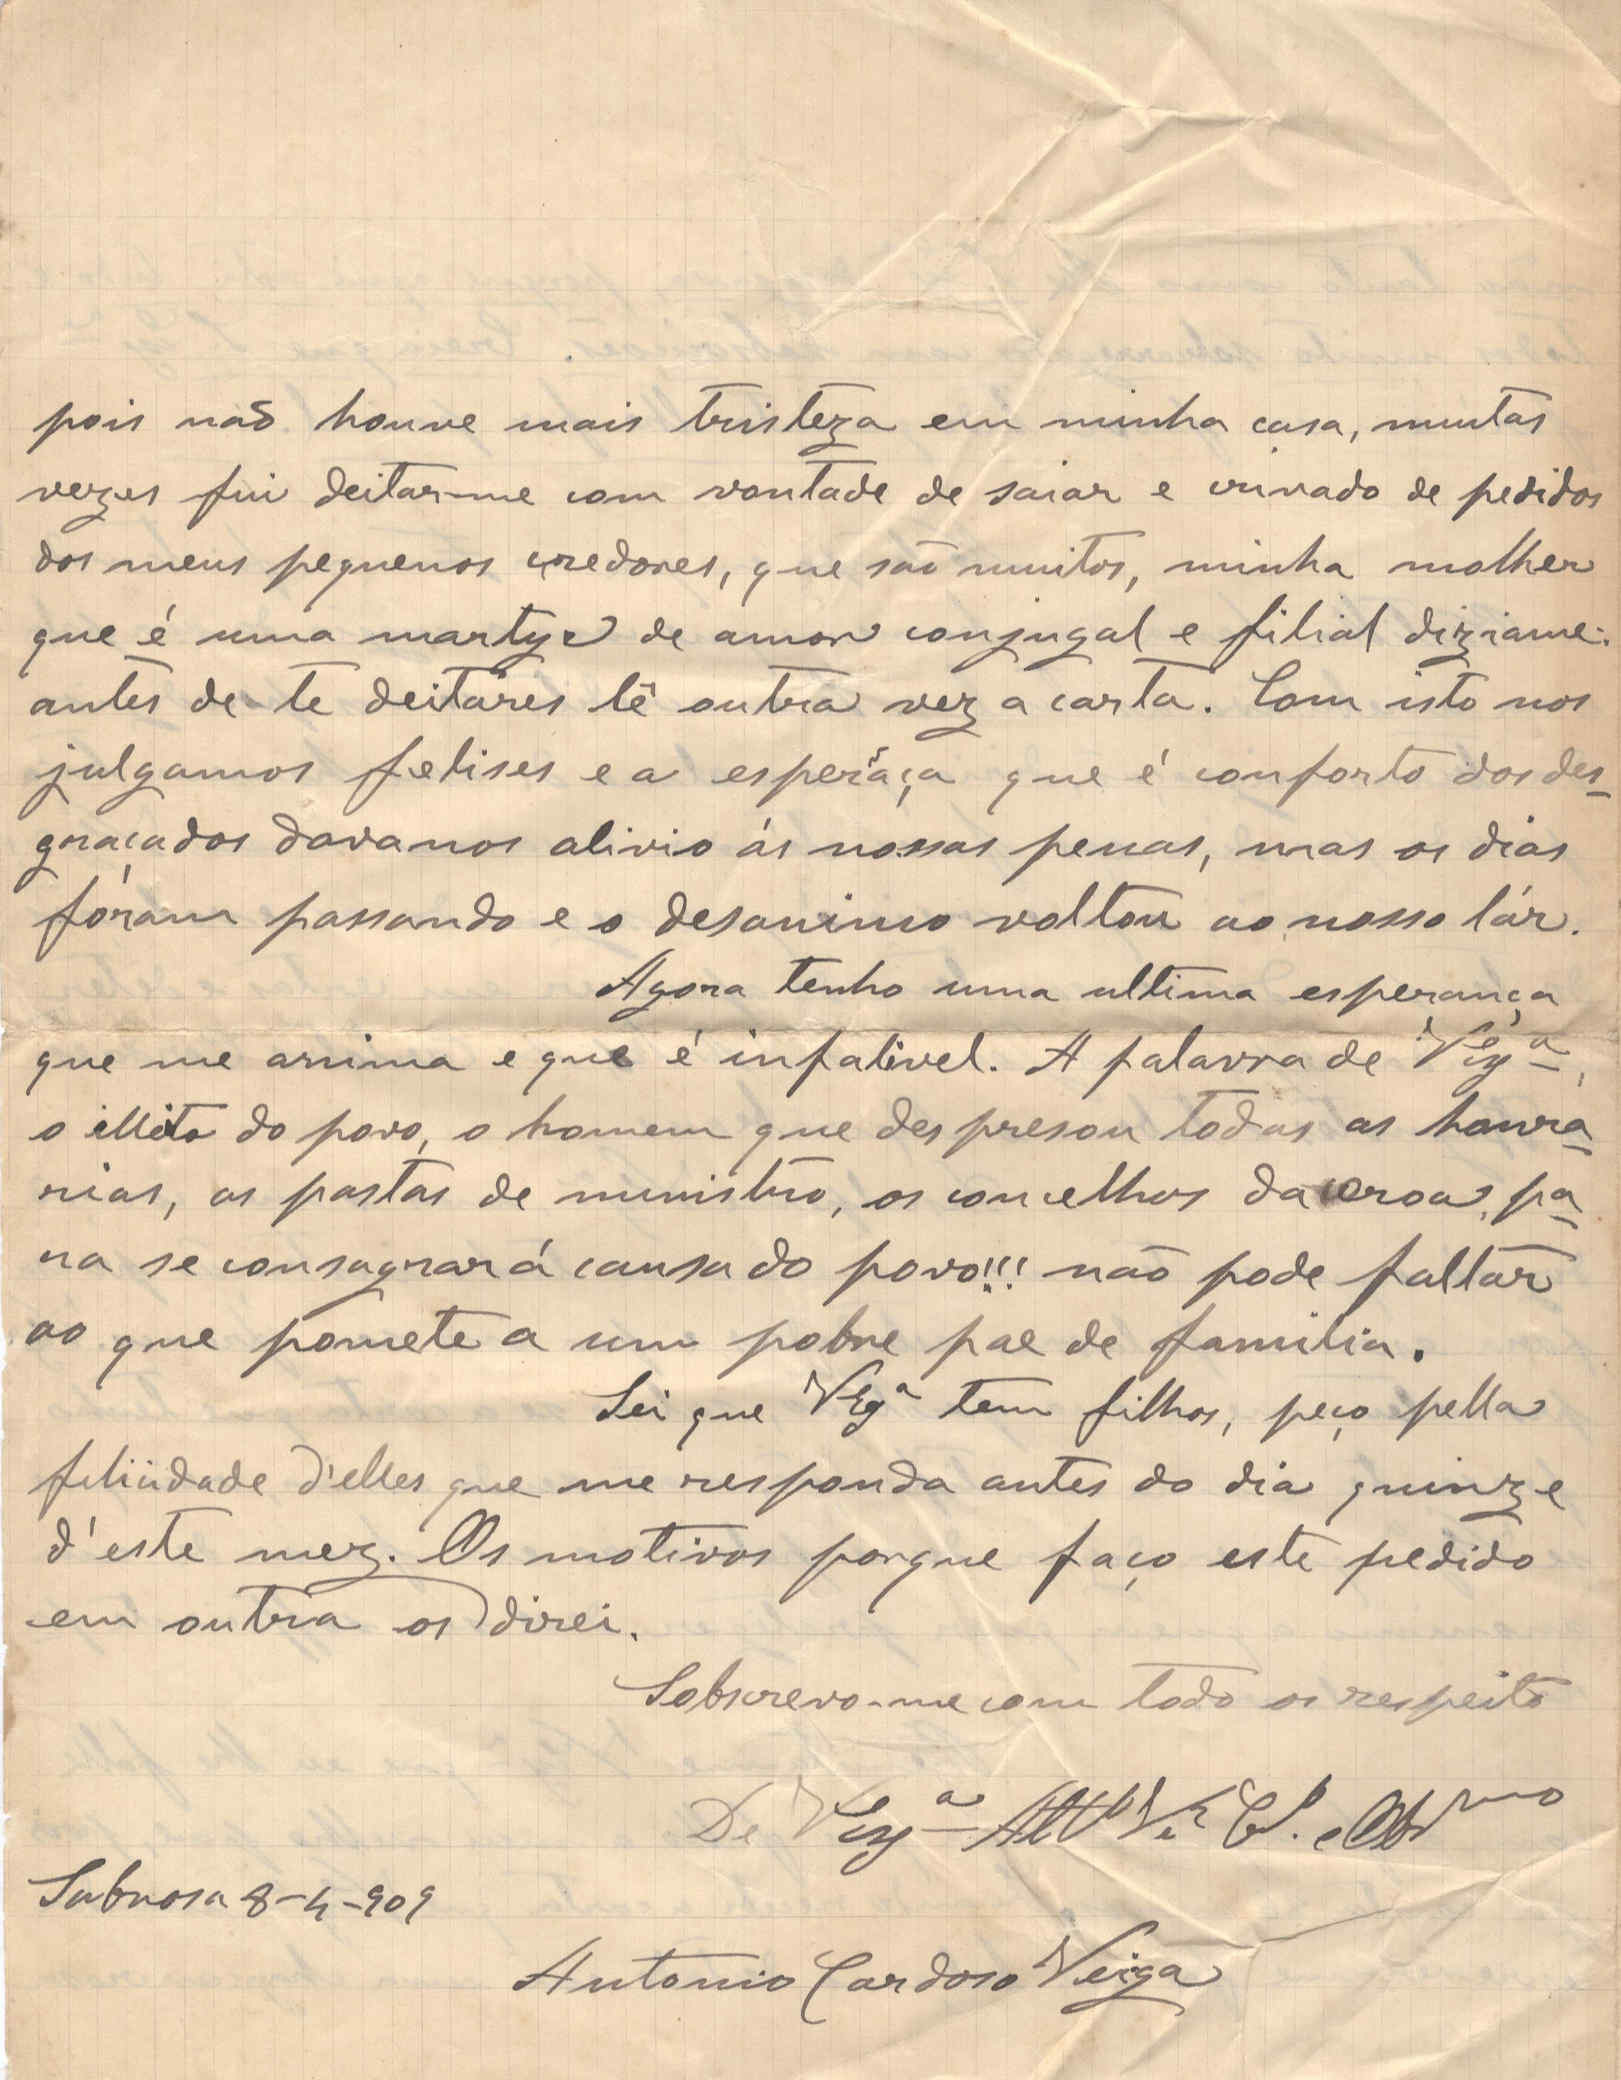 pois não houve mais tristeza em minha casa, muntas
vezes fui deitar-me com vontade de saiar e crivado de pedidos
dos meus pequenos credores, que são muitos, minha molher
que é uma martyr de amor conjugal e filial diziame:
antes de te deitares lê outra vez a carta. Com isto nos
julgamos felises e a esperãça que é conforto dos des-
graçados davanos alivio ás nossas penas, mas os dias
fóram passando e o desanimo voltou ao nosso lár.
Agora tenho uma ultima esperança
que me anima e que é infalivel. A palavra de Vexª,
o illeito do povo, o homem que despresou todas as honra-
rias, as pastas de ministro, os concelhos da coroa, pa-
ra se consagrar á causa do povo!!! não pode faltar
ao que pomete a um pobre pae de familia.
Sei que VExª tem filhos, peço pella
felicidade d'elles que me responda antes do dia quinze
d'este mez. Os motivos porque faço este pedido
em outra os direi.
Sobscrevo-me com todo os respeito
De Vexª Attº Vºr Cº. e Obrmo
Sabrosa 8-4-909
Antonio Cardoso Veiga